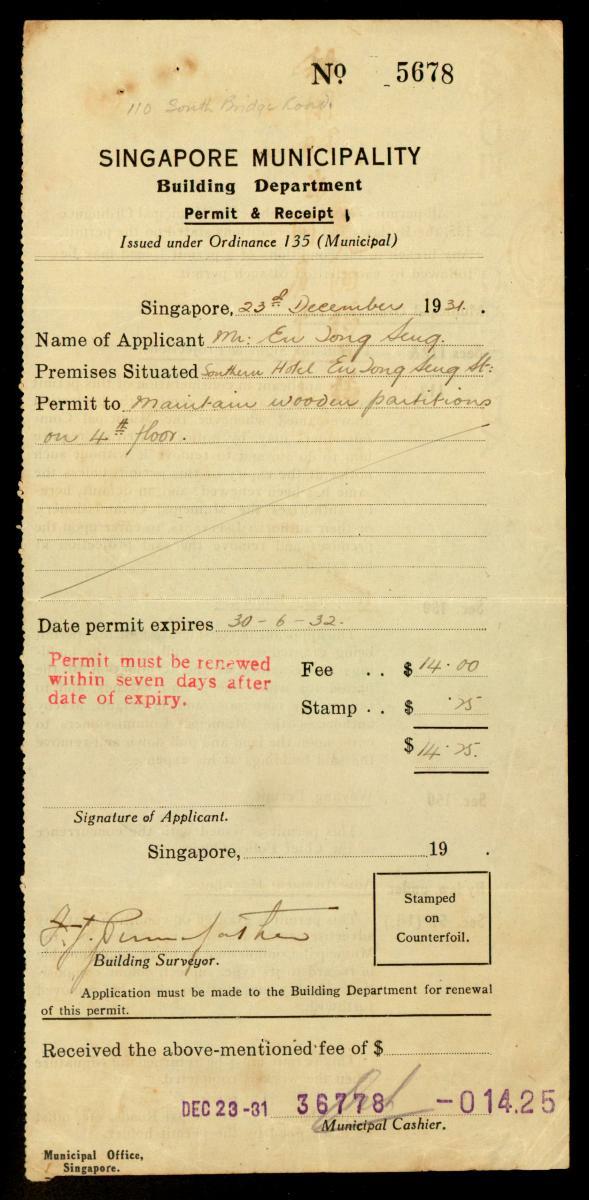 No 5678
110 South Bridge Road.
SINGAPORE MUNICIPALITY
Building Department
Permit & Receipt
Issued under Ordinance 135 (Municipal)
Singapore, 23rd December 1931.
Name of Applicant Mr: Eu Tong Seng.
Premises Situated Southern Hotel Eu Tong Seng St:
Permit to Maintain wooden partitions
on 4th floor.
Date permit expires 30-6-32.
Permit must be renewed
within seven days after
date of expiry.
Fee .. $ 14.00
Stamp .. $ .25
$ 14.25.
Signature of Applicant.
Singapore, 19 .
Stamped
on
Counterfoil.
Building Surveyor.
Application must be made to the Building Department for renewal
of this permit.
Received the above-mentioned fee of $
DEC 23-31 36778 -014.25
Municipal Cashier.
Municipal Office,
Singapore.